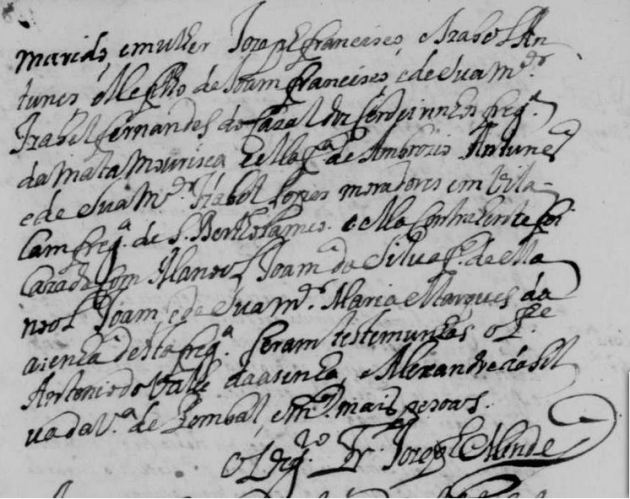 marido, e mulher Jozeph francisco, e Izabel An
tunes elle fº de Joam francisco e de sua mer
Izabel fernandes do Cazal dos ferreiros freg.ª
da mata mourisca Ella f.ª de Ambrozio Antunes
e de sua mer Izabel Lopes moradores em Vila
Cam freg.ª de S. Bertholameo. e ella contraente foi
Cazada com Manoel Joam da Silva f.º de Ma
noel Joam e de sua mer Maria Marques da
asenha desta freg.ª. feram testemunhas o P.e
Antonio do Valle da asenha e Alexandre da sil
va da V.ª de Pombal, e m.tas mais pesoas.
O Frey Jozeph Mende